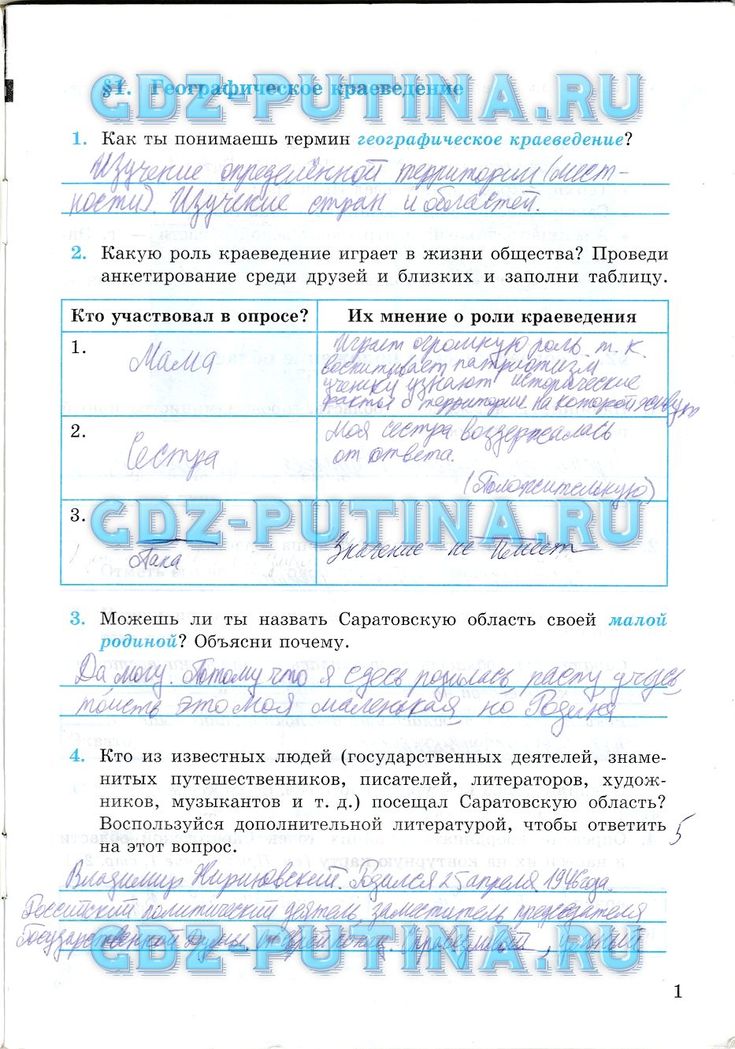 §1. Географическое краеведение
GDZ-PUTINA.RU
1. Как ты понимаешь термин географическое краеведение?
Изучение определённой территории (мест-
ности). Изучение стран и областей.
2. Какую роль краеведение играет в жизни общества? Проведи
анкетирование среди друзей и близких и заполни таблицу.
Кто участвовал в опросе? Их мнение о роли краеведения
1. Мама
Играет огромную роль т. к.
воспитывает патриотизм
ученики узнают исторические
факты о территории на которой живут
2. Сестра
Моя сестра воздержалась
от ответа.
(Положительную)
GDZ-PUTINA.RU
3. Папа
Значение не имеет
3. Можешь ли ты назвать Саратовскую область своей малой
родиной? Объясни почему.
Да могу. Потому что я здесь родилась расту учусь
тоисть это моя маленькая но Родина
4. Кто из известных людей (государственных деятелей, знаме-
нитых путешественников, писателей, литераторов, худож-
ников, музыкантов и т. д.) посещал Саратовскую область?
Воспользуйся дополнительной литературой, чтобы ответить
на этот вопрос.
5
Владимир Жириновский. Родился 25 апреля 1946 года.
Российский политический деятель, заместитель председателя
Государственной Думы
GDZ-PUTINA.RU
1